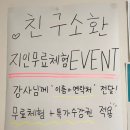 친구소환
지인무료체험 EVENT
강사님께 "이름+연락처" 전달!
무료체험 + 특가수강권 적용